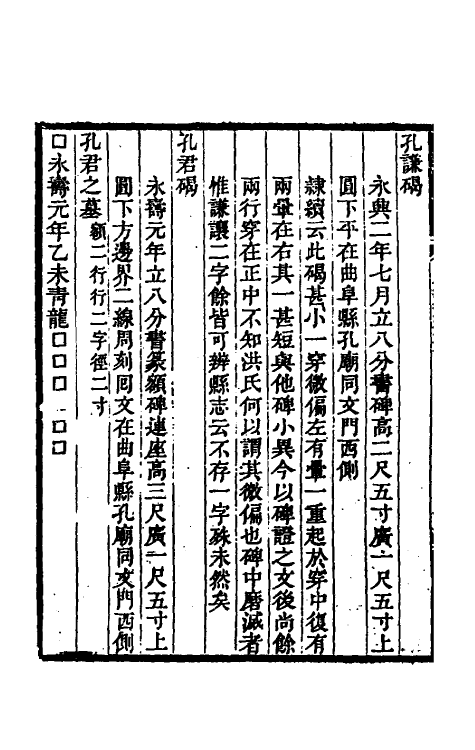 孔謙碣
永興二年七月立八分書碑高二尺五寸廣一尺五寸上
圓下平在曲阜縣孔廟同文門西側
隸續云此碣甚小一穿微偏左有暈一重起於穿中復有
兩暈在右其一甚短與他碑小異今以碑證之文後尚餘
兩行穿在正中不知洪氏何以謂其微偏也碑中磨滅者
惟謙讓二字餘皆可辨縣志云不存一字殊未然矣
孔君碣
永壽元年立八分書篆額碑連座高三尺廣一尺五寸上
圓下方邊界二線周刻回文在曲阜縣孔廟同文門西側
孔君之墓額二行行二字徑二寸
□永壽元年乙未青龍□□□□□